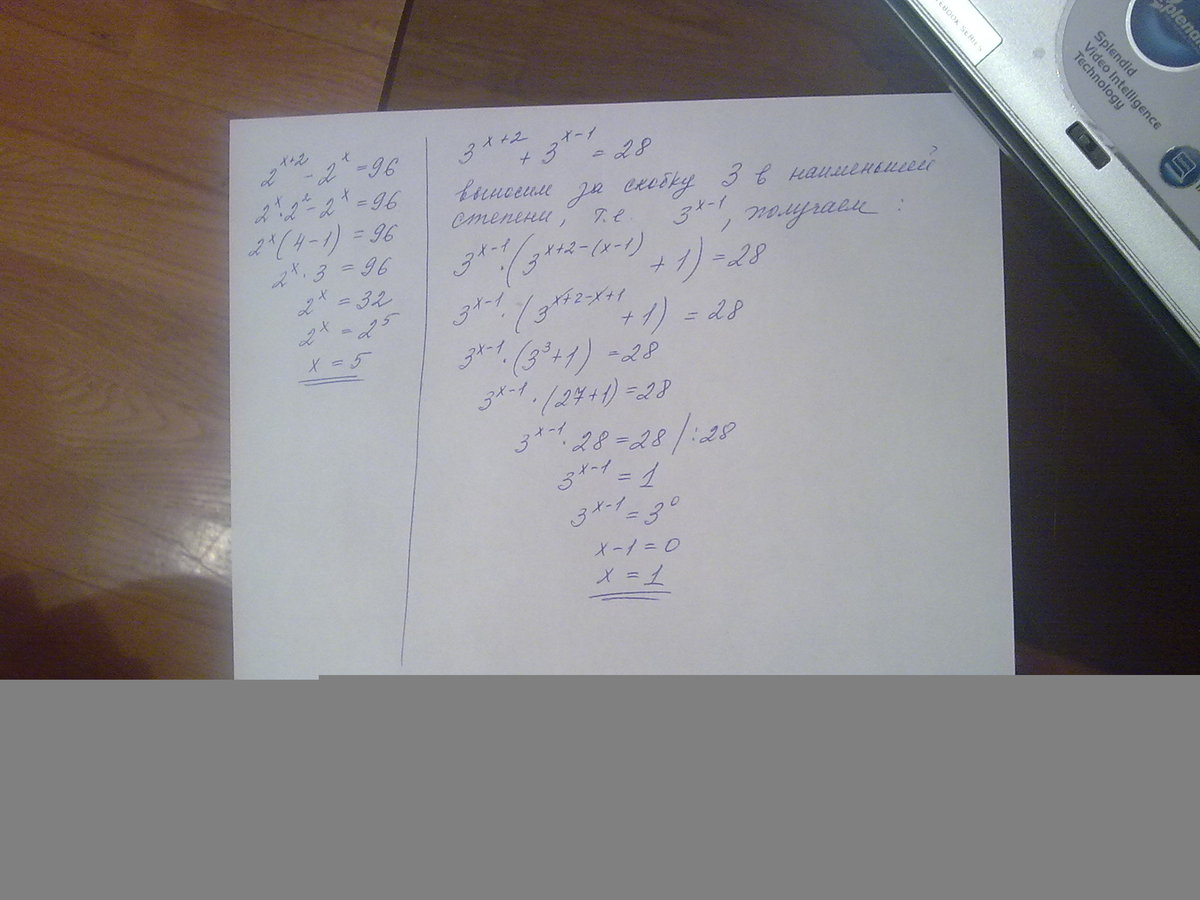 2^{x+2} - 2^x = 96
2^x · 2^2 - 2^x = 96
2^x (4 - 1) = 96
2^x · 3 = 96
2^x = 32
2^x = 2^5
x = 5
3^{x+2} + 3^{x-1} = 28
выносим за скобку 3 в наименьшей
степени, т.е. 3^{x-1}, получаем:
3^{x-1} · (3^{x+2-(x-1)} + 1) = 28
3^{x-1} · (3^{x+2-x+1} + 1) = 28
3^{x-1} · (3^3 + 1) = 28
3^{x-1} · (27 + 1) = 28
3^{x-1} · 28 = 28 / : 28
3^{x-1} = 1
3^{x-1} = 3^0
x - 1 = 0
x = 1
SERIES
Splendid
Video Intelligence
Technology